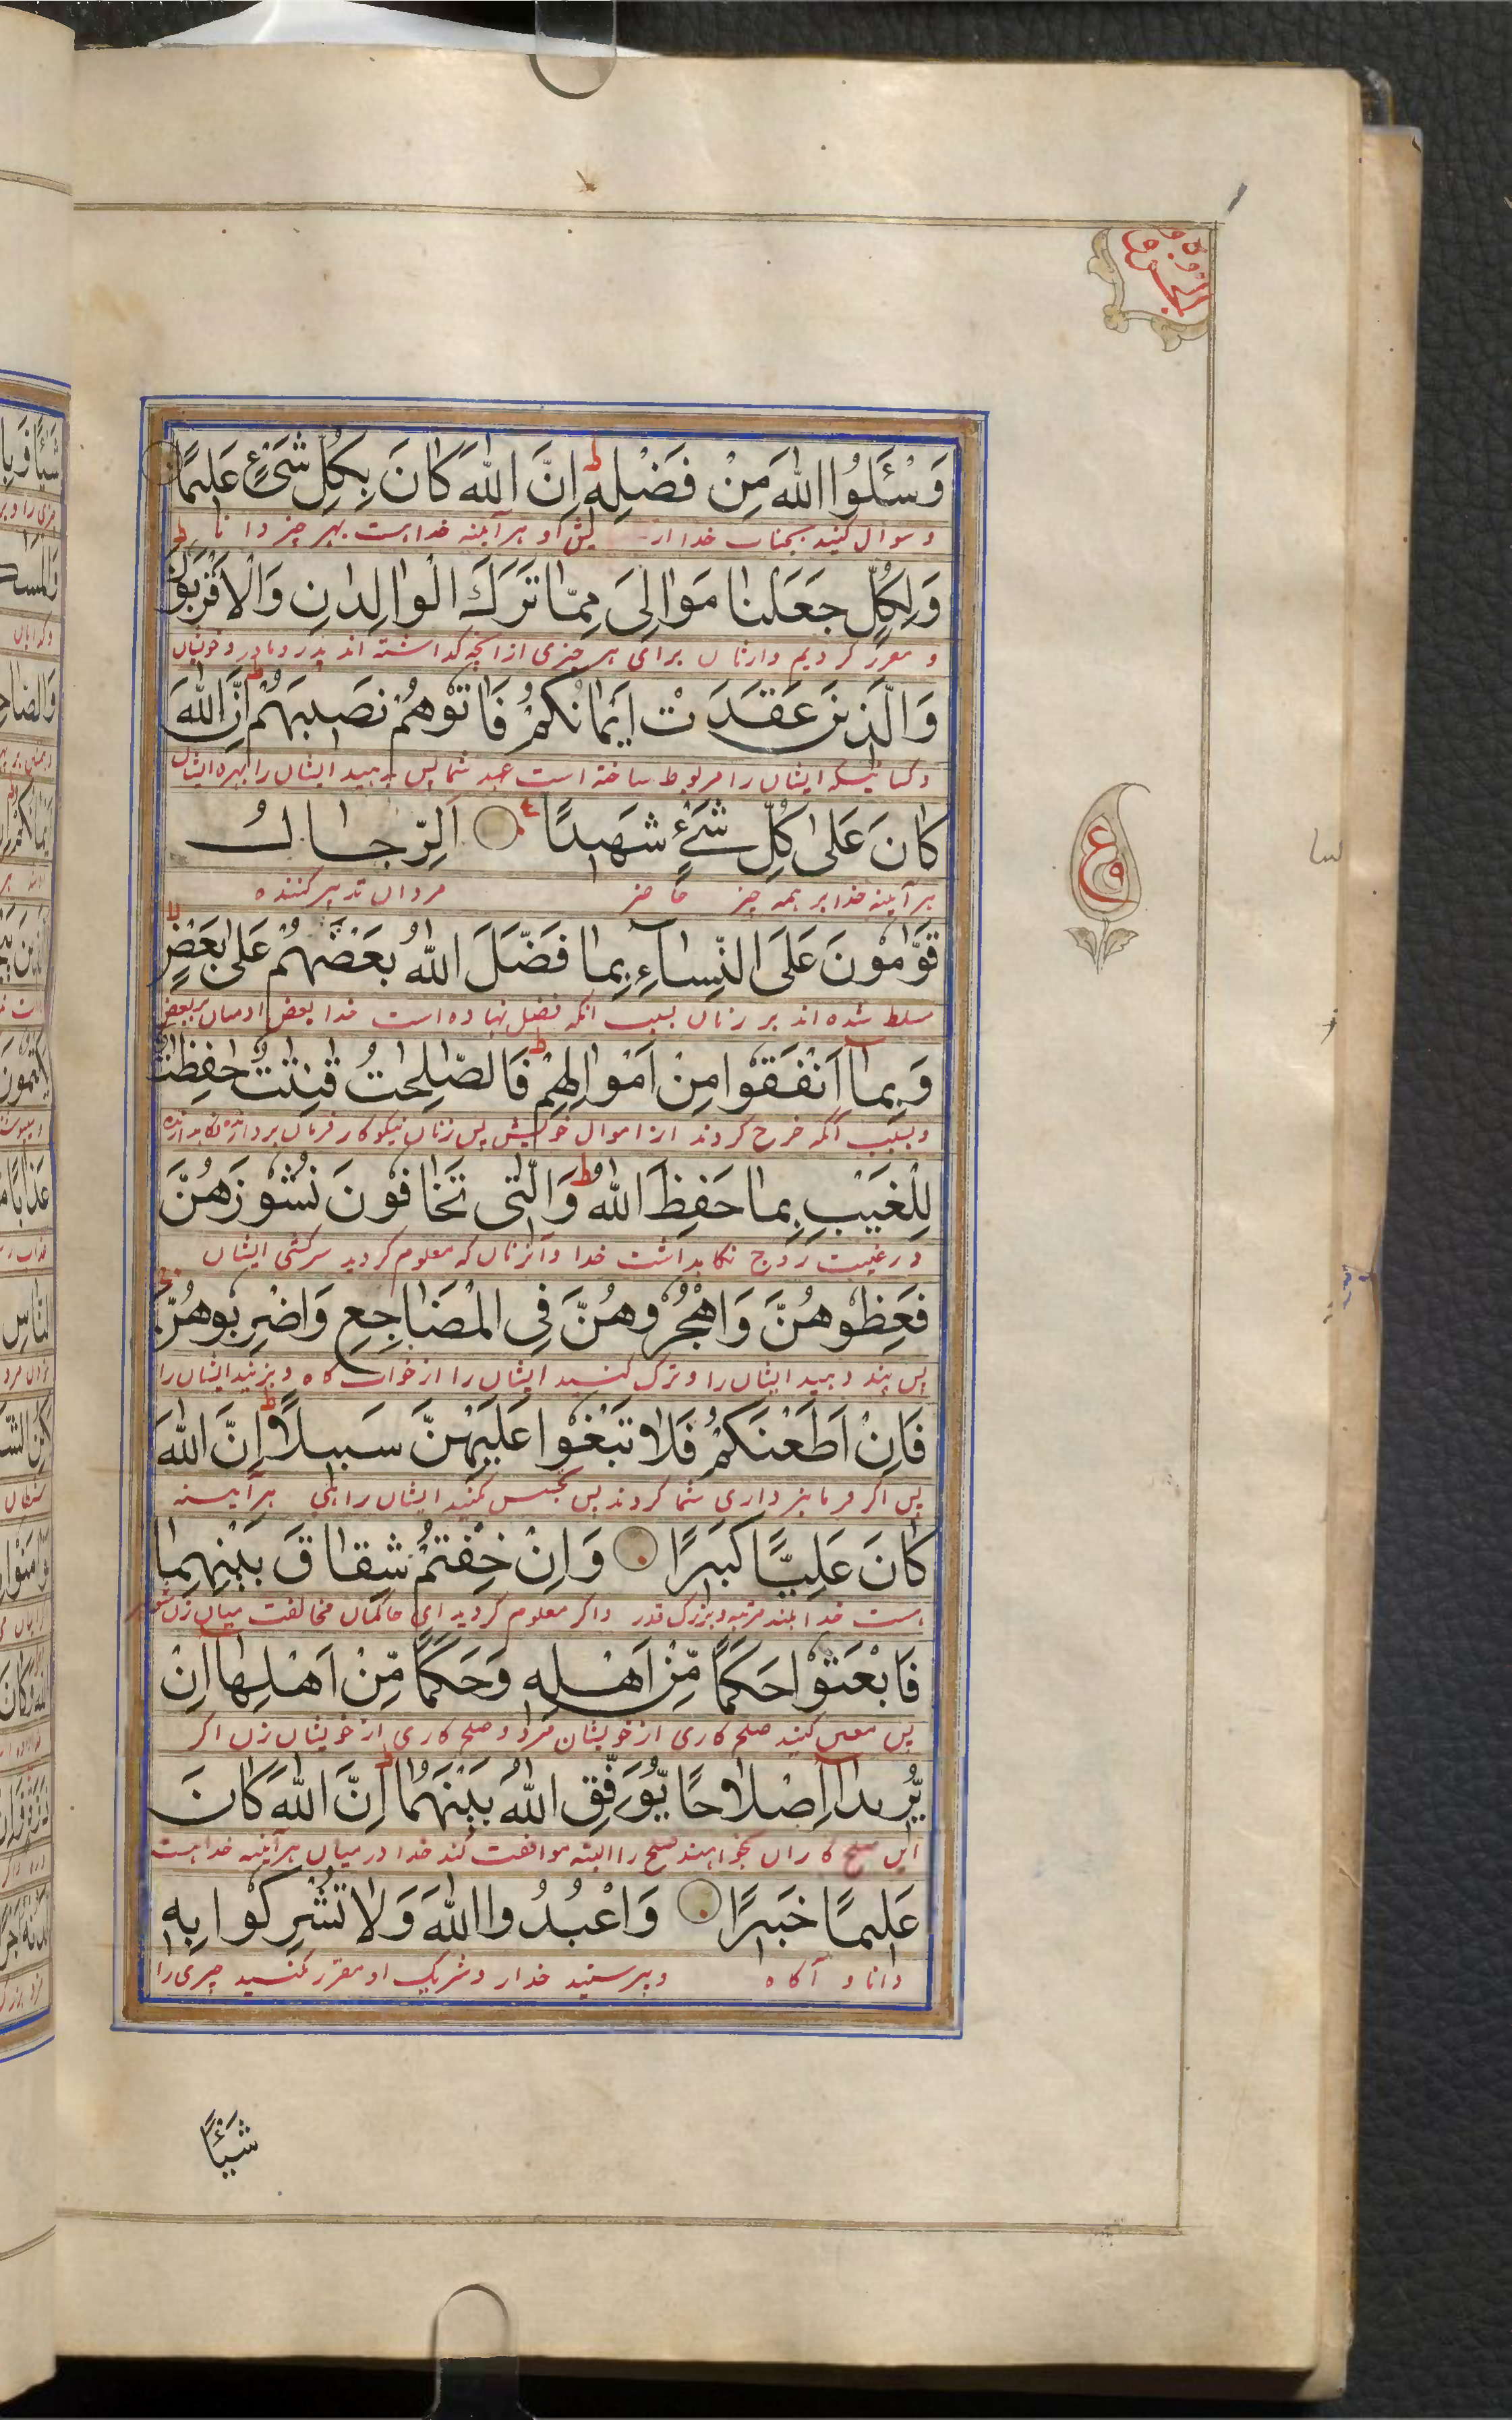 وَسْئَلُوا اللّٰهَ مِنْ فَضْلِهٖ ط اِنَّ اللّٰهَ كَانَ بِكُلِّ شَیْءٍ عَلِیمًا
و سوال کنید بجناب خدا از او هر آینه خدا هست بهر چیز دانا
وَلِكُلٍّ جَعَلْنَا مَوَالِیَ مِمَّا تَرَكَ الْوَالِدٰنِ وَالْاَقْرَبُوْنَ ط
و مقرر کردیم وارثان برای هر چیزی از انچه گذاشته اند پدر و مادر و خویشان
وَالَّذِیْنَ عَقَدَتْ اَیْمَانُكُمْ فَاٰتُوْهُمْ نَصِیْبَهُمْ ط اِنَّ اللّٰهَ
و کسانیکه ایشان را مربوط ساخته است عهد شما پس بدهید ایشان را بهره ایشان
كَانَ عَلٰی كُلِّ شَیْءٍ شَهِیْدًا ع اَلرِّجَالُ
هر آینه خدا بر همه چیز حاضر مردان تدبیر کننده
قَوّٰمُوْنَ عَلَی النِّسَآءِ بِمَا فَضَّلَ اللّٰهُ بَعْضَهُمْ عَلٰی بَعْضٍ لا
مسلط شده اند بر زنان بسبب انکه فضل نهاده است خدا بعض ادمیان بر بعض
وَبِمَآ اَنْفَقُوْا مِنْ اَمْوَالِهِمْ ط فَالصّٰلِحٰتُ قٰنِتٰتٌ حٰفِظٰتٌ
و بسبب انکه خرج کردند از اموال خویش پس زنان نیکوکار فرمان بردارنده نگاهدارنده
لِلْغَیْبِ بِمَا حَفِظَ اللّٰهُ ط وَالّٰتِی تَخَافُوْنَ نُشُوْزَهُنَّ
در غیبت زوج نگاهداشت خدا و آنزنان که معلوم کردید سرکشی ایشان
فَعِظُوْهُنَّ وَاهْجُرُوْهُنَّ فِی الْمَضَاجِعِ وَاضْرِبُوْهُنَّ ج
پس پند دهید ایشان را و ترک کنید ایشان را از خواب گاه و بزنید ایشان را
فَاِنْ اَطَعْنَكُمْ فَلَا تَبْغُوْا عَلَیْهِنَّ سَبِیلًا ط اِنَّ اللّٰهَ
پس اگر فرمانبرداری شما کردند پس تجسس مکنید ایشان راهی هر آینه
كَانَ عَلِیًّا كَبِیرًا وَاِنْ خِفْتُمْ شِقَاقَ بَیْنِهِمَا
هست خدا بلند مرتبه و بزرگ قدر و اگر معلوم کردید ای حاکمان مخالفت میان زن و شوهر
فَابْعَثُوْا حَكَمًا مِّنْ اَهْلِهٖ وَحَكَمًا مِّنْ اَهْلِهَا اِنْ
پس معین کنید صلح کاری از خویشان مرد و صلح کاری از خویشان زن اگر
یُّرِیْدَآ اِصْلَاحًا یُّوَفِّقِ اللّٰهُ بَیْنَهُمَا ط اِنَّ اللّٰهَ كَانَ
این صلح کاران بخواهند صلح را البته موافقت کند خدا درمیان هر آینه خدا هست
عَلِیمًا خَبِیرًا وَاعْبُدُوا اللّٰهَ وَلَا تُشْرِكُوْا بِهٖ
دانا و آگاه و بپرستید خدا را و شریک او مقرر مکنید چیزی را
شَیْئًا